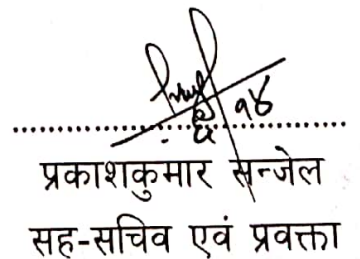 प्रकाशकुमार सन्जेल
सह-सचिव एवं प्रवक्ता